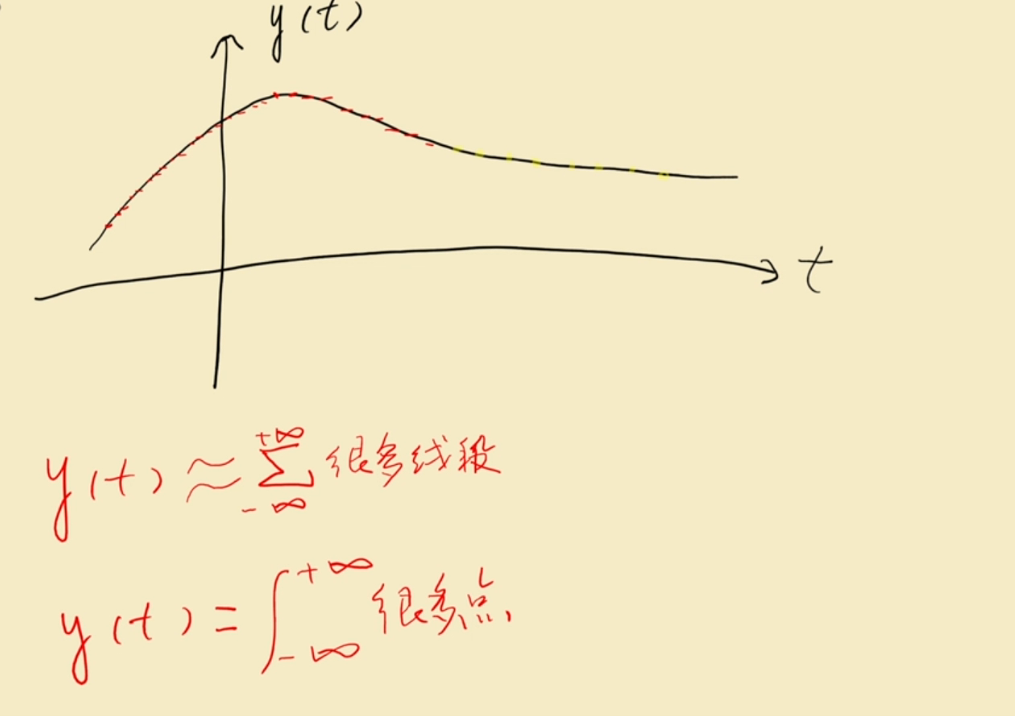 y(t)
t
y(t)≈∑_{-∞}^{+∞}很多线段
y(t)=∫_{-∞}^{+∞}很多点